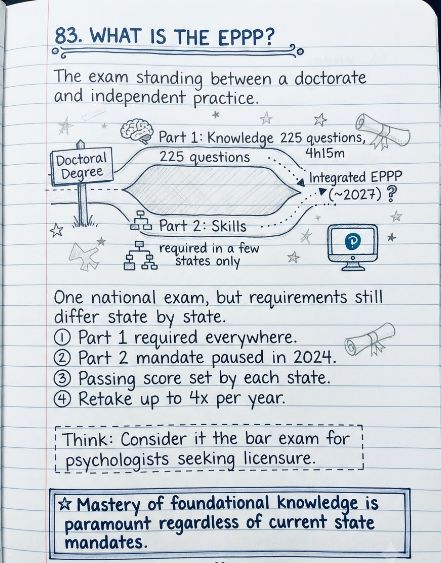 83. WHAT IS THE EPPP?
The exam standing between a doctorate
and independent practice.
Doctoral
Degree
Part 1: Knowledge 225 questions,
4h15m
225 questions
Integrated EPPP
(~2027) ?
Part 2: Skills
required in a few
states only
P
One national exam, but requirements still
differ state by state.
① Part 1 required everywhere.
② Part 2 mandate paused in 2024.
③ Passing score set by each state.
④ Retake up to 4x per year.
Think: Consider it the bar exam for
psychologists seeking licensure.
☆ Mastery of foundational knowledge is
paramount regardless of current state
mandates.